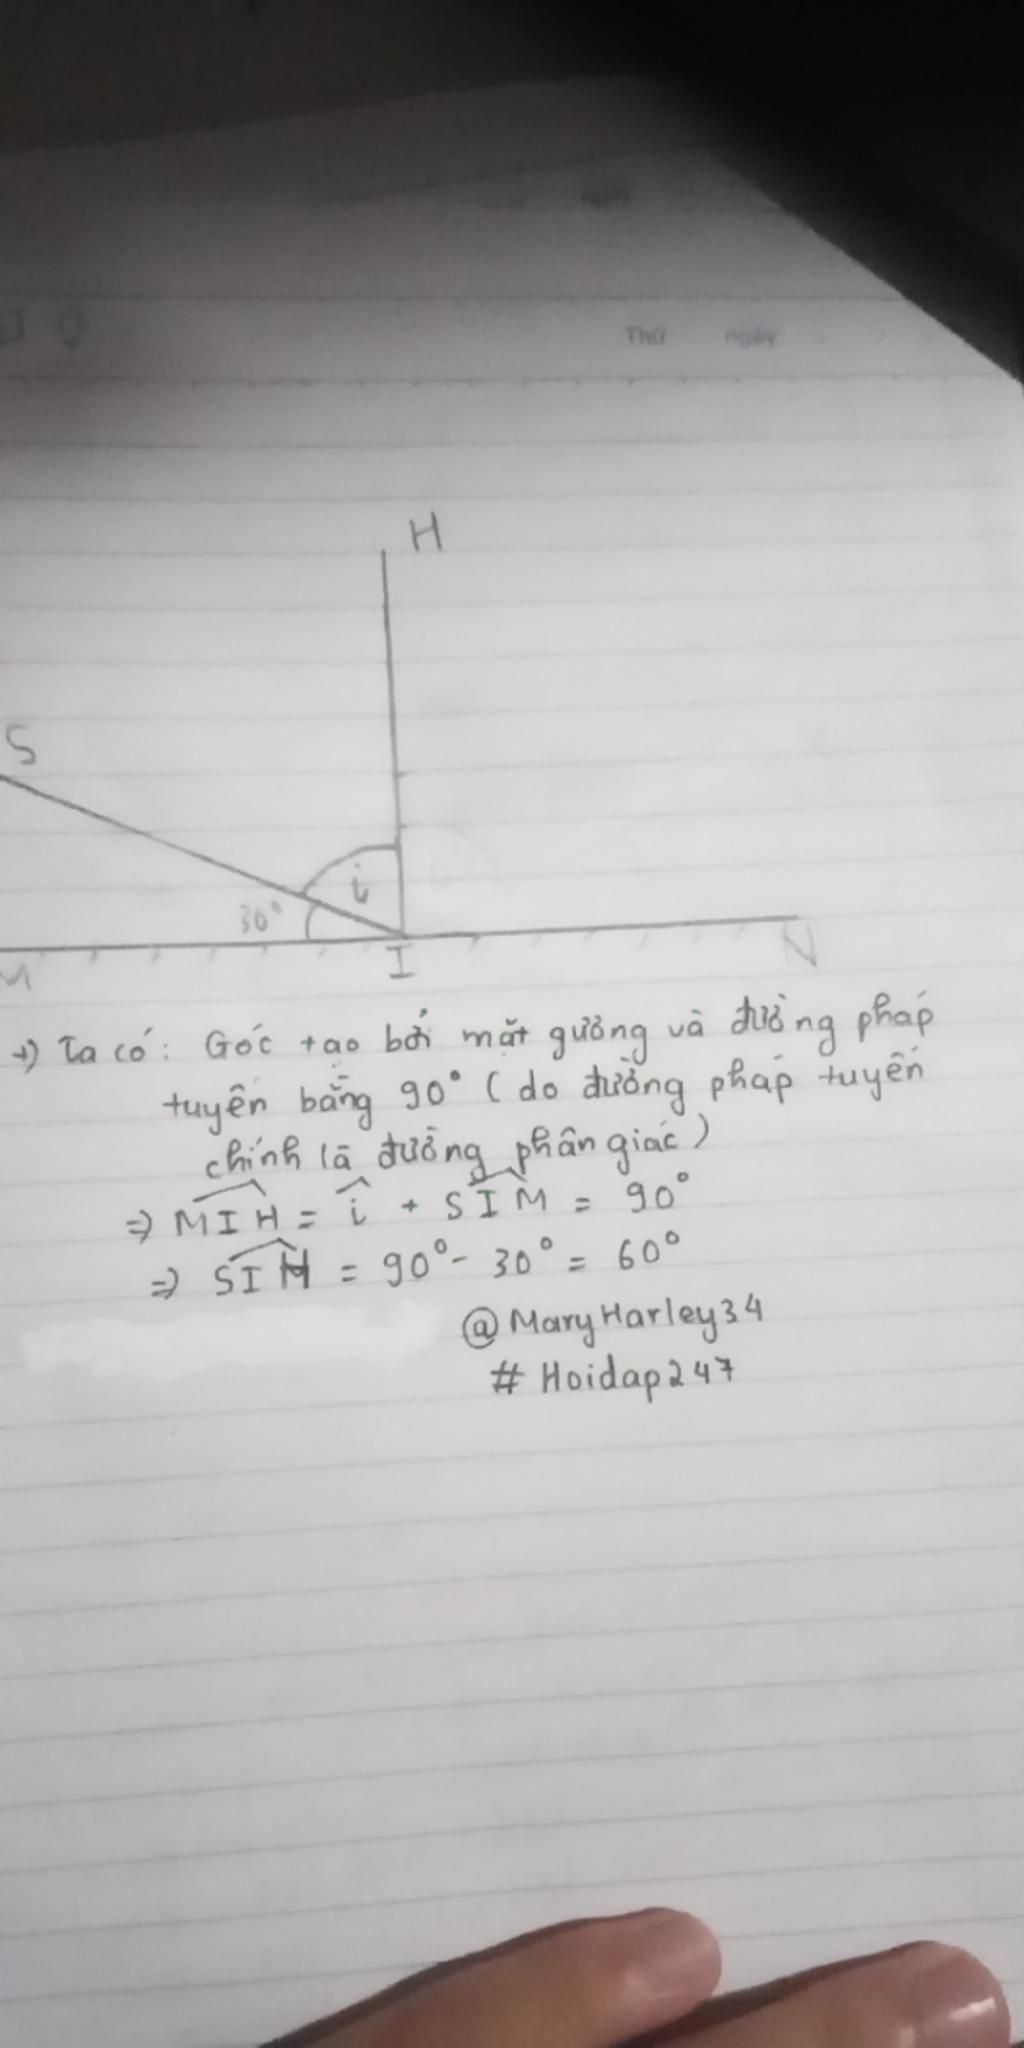 Thứ ngày
H
S
i
30°
M I N
→) Ta có: Góc tạo bởi mặt gường và đường pháp
tuyến bằng 90° (do đường pháp tuyến
chính là đường phân giác)
=> MIH = i + SIM = 90°
=> SIH = 90° - 30° = 60°
@MaryHarley34
# Hoidap247